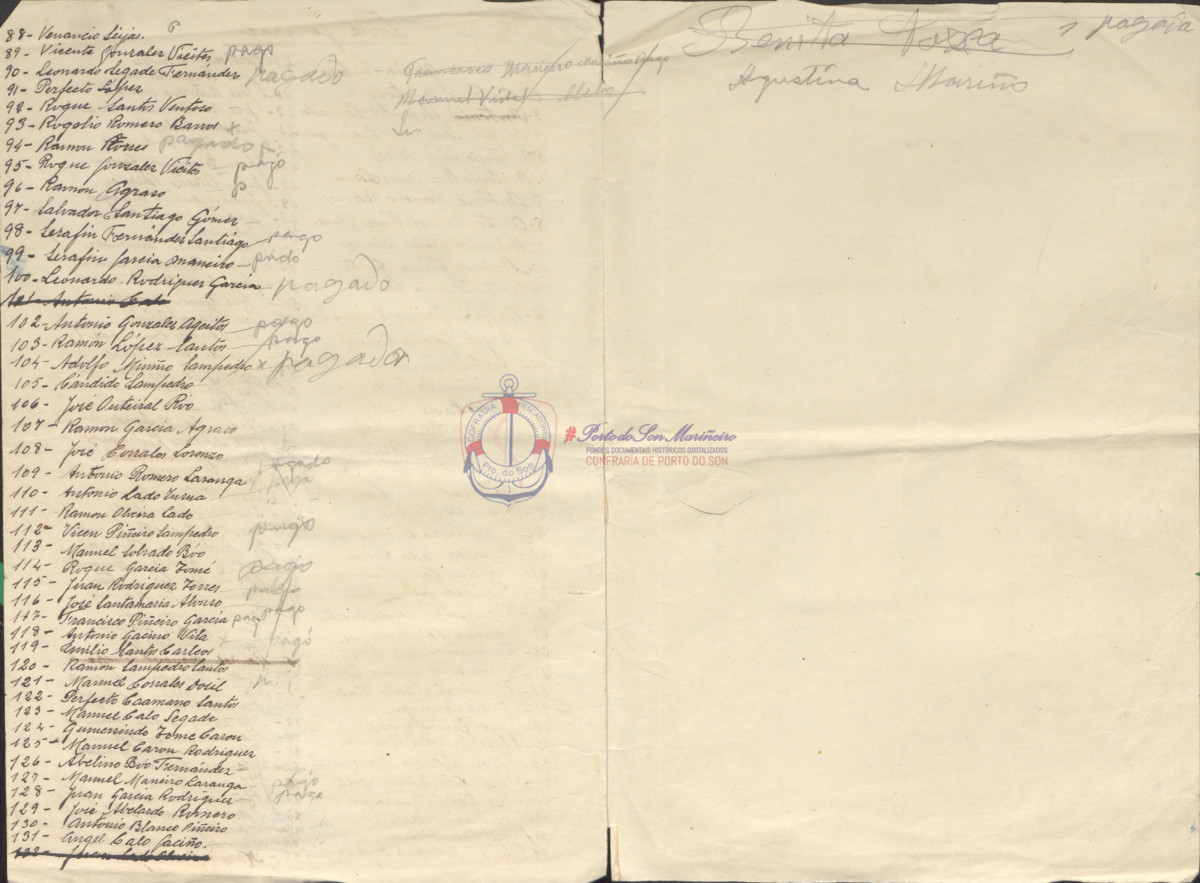 88- Venancio Seijas. 6
89- Vicente Gonzalez Vieites, pago
90- Leonardo Segade Fernández pagado
91- Perfecto López
92- Roque Santos Ventoso
93- Rogelio Romero Barros x
94- Ramon Torres pagado
95- Roque Gonzalez Vieites - pago
96- Ramon Agraso p
97- Salvador Santiago Gómez -
98- Serafin Fernández Santiágo pago
99- Serafin Garcia Maneiro - pado
100- Leonardo. Rodriguez Garcia - pagado
101- Antonio Calo
102- Antonio Gonzalez Ageitos pago
103- Ramón López Santos pago
104- Adolfo Muiño Sampedro x pagado
105- Cándido Sampedro
106- José Outeiral Rio
107- Ramon Garcia Agraso
108- José Corrales Lorenzo
109- Antonio Romero Laranga pagado
110- Antonio Lado paga
111- Ramon Oliveira Lado
112- Vicen Piñeiro Sampedro pago
113- Manuel Sobrado Bóo
114- Roque Garcia Tomé pago
115- Juan Rodriguez Torres pago
116- José Santamaria Alonso pago
117- Francisco Piñeiro Garcia pago
118- Antonio Gacino Vila x
119- Emilio Santos Carleos pagó
120- Ramon Sampedro Santos
121- Manuel Corrales Dosil p.
122- Perfecto Caamano Santos
123- Manuel Calo Segade
124- Gumenindo Tome Caron
125- Manuel Carou Rodriguez
126- Abelino Bóo Fernández
127- Manuel Maneiro Laranga pago
128- Juan Garcia Rodriguez - paga
129- José Abelardo Romero
130- Antonio Blanco Piñeiro
131- Angel Calo Gaciño.
132- Juan Calo Oliveira
Francisco Maneiro Mariño pago
Manuel Vidal
Benita pagada
Agustina Mariño
COFRADRÍA PESCADORES
Pto. do Son
#Porto do Son Mariñeiro
FONDOS DOCUMENTAIS HISTÓRICOS DIXITALIZADOS
CONFRARÍA DE PORTO DO SON